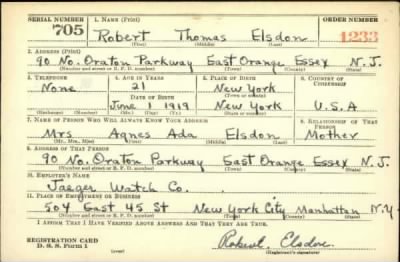 SERIAL NUMBER 1. NAME (Print) ORDER NUMBER
705 Robert Thomas Elsdon 1233
(First) (Middle) (Last)
2. ADDRESS (Print)
90 No. Oraton Parkway East Orange Essex N.J.
(Number and street or R. F. D. number) (Town) (County) (State)
3. TELEPHONE 4. AGE IN YEARS 5. PLACE OF BIRTH 6. COUNTRY OF CITIZENSHIP
None 21 New York
DATE OF BIRTH (Town or county)
June 1 1919 New York U.S.A
(Exchange) (Number) (Mo.) (Day) (Yr.) (State or country)
7. NAME OF PERSON WHO WILL ALWAYS KNOW YOUR ADDRESS 8. RELATIONSHIP OF THAT PERSON
Mrs Agnes Ada Elsdon Mother
(Mr., Mrs., Miss) (First) (Middle) (Last)
9. ADDRESS OF THAT PERSON
90 No. Oraton Parkway East Orange Essex N.J.
(Number and street or R. F. D. number) (Town) (County) (State)
10. EMPLOYER'S NAME
Jaeger Watch Co.
11. PLACE OF EMPLOYMENT OR BUSINESS
504 East 45 St New York City Manhattan N.Y.
(Number and street or R. F. D. number) (Town) (County) (State)
I AFFIRM THAT I HAVE VERIFIED ABOVE ANSWERS AND THAT THEY ARE TRUE.
REGISTRATION CARD
D. S. S. Form 1 (over) Robert Elsdon
(Registrant's signature)